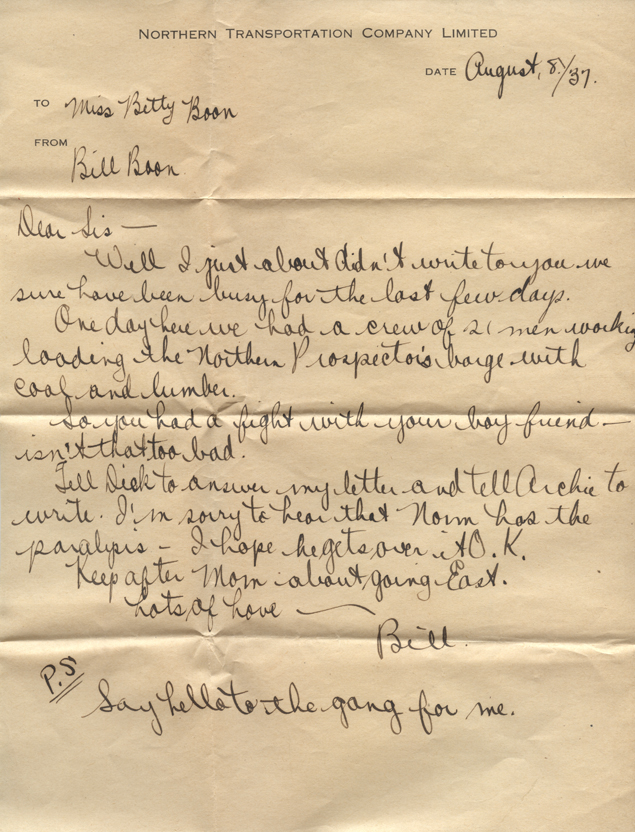 NORTHERN TRANSPORTATION COMPANY LIMITED
DATE August, 8/37.
TO Miss Betty Boon
FROM
Bill Boon
Dear Sis —
Well I just about didn't write to you we
sure have been busy for the last few days.
One day here we had a crew of 21 men working
loading the Northern Prospector's barge with
coal and lumber.
So you had a fight with your boy friend —
isn't that too bad.
Tell Dick to answer my letter and tell Archie to
write. I'm sorry to hear that Norm has the
paralysis – I hope he gets over it O.K.
Keep after Mom about going East.
Lots of Love —
Bill.
P.S
Say hello to the gang for me.